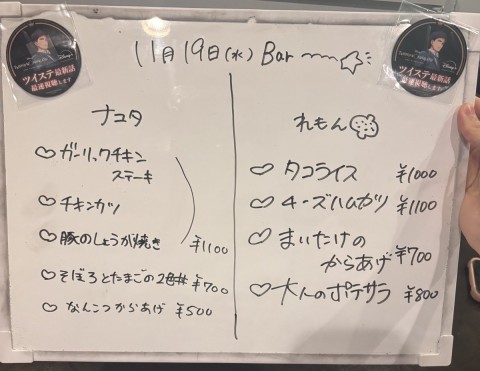 11月19日(水) Bar
ツイステ最新話
最速視聴します
Disney+
ツイステ最新話
最速視聴します
Disney+
ナユタ
ガーリックチキン
ステーキ
チキンカツ
豚のしょうが焼き ¥1100
そぼろとたまごの2色丼 ¥700
なんこつからあげ ¥500
れもん
タコライス ¥1000
チーズハムカツ ¥1100
まいたけの
からあげ ¥700
大人のポテサラ ¥800